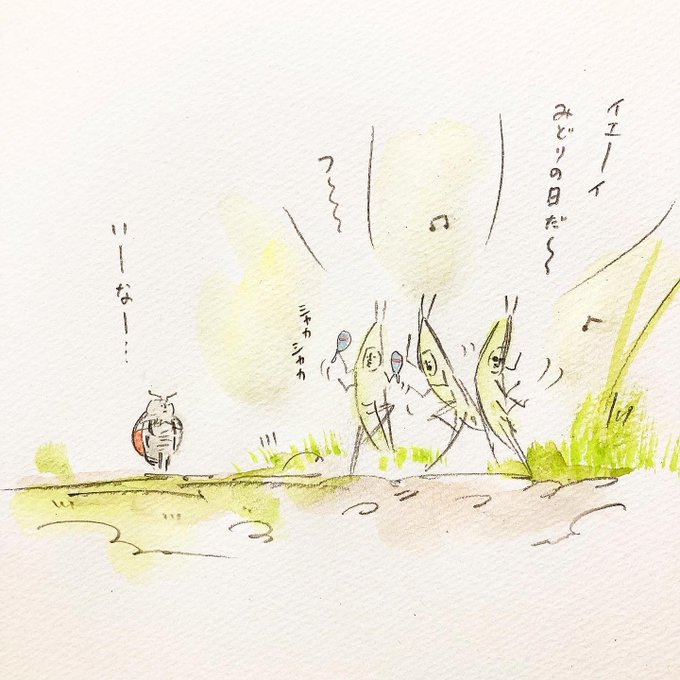 イエーイ
みどりの日だ〜〜
フ〜〜〜
シャカ
シャカ
いーなー…